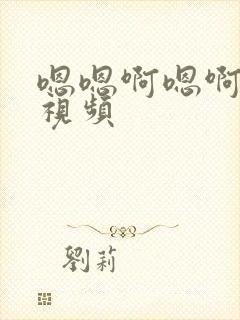 嗯嗯啊嗯啊
视頻
劉莉